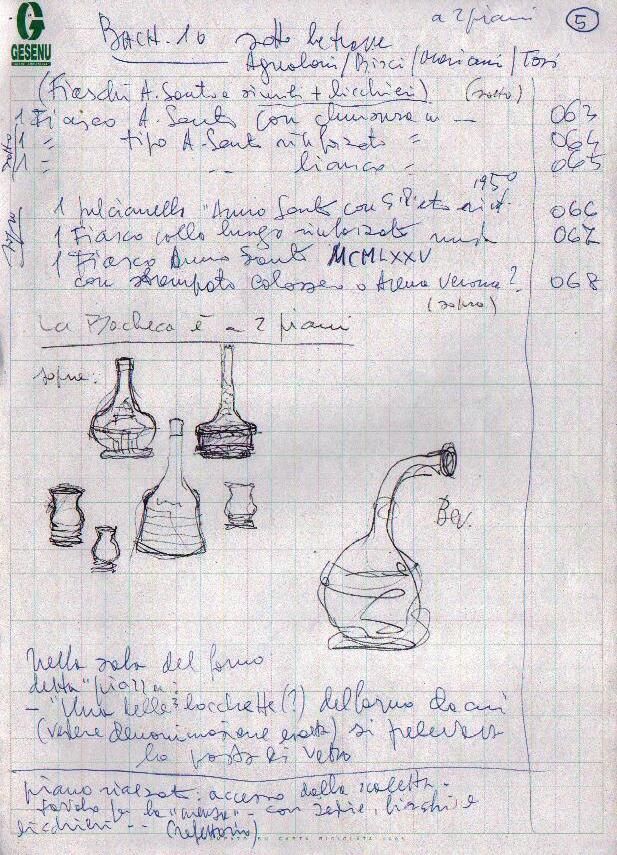 a 2 piani
5
GESENU
BACH. 10 sotto le trave
Agnoloni / Bisci / Mariani / Tosi
(Fiaschi A. Santo e + bicchieri) (sotto)
1 Fiasco A. Santo con chiusura in -- 063
sotto 1 = tipo A. Santo rinforzato = 064
1 = -- bianco = 065
1950
1 pulcianella "Anno Santo con S. Pietro 066
sopra 1 Fiasco collo lungo rinforzato 067
1 Fiasco Anno Santo MCMLXXV
con stampato Colosseo o Arena Verona? 068
(sopra)
La Bacheca è a 2 piani
sopra:
Nella sala del forno
detta "piazza":
- "Una delle 3 bocchette (?) del forno da cui
(vedere denominazione esatta) si prelevava
la pasta di vetro
piano rialzato: accesso dalla scaletta -
tavolo per la "mensa" - con sedie, fiaschi e
bicchieri -- (refettorio)